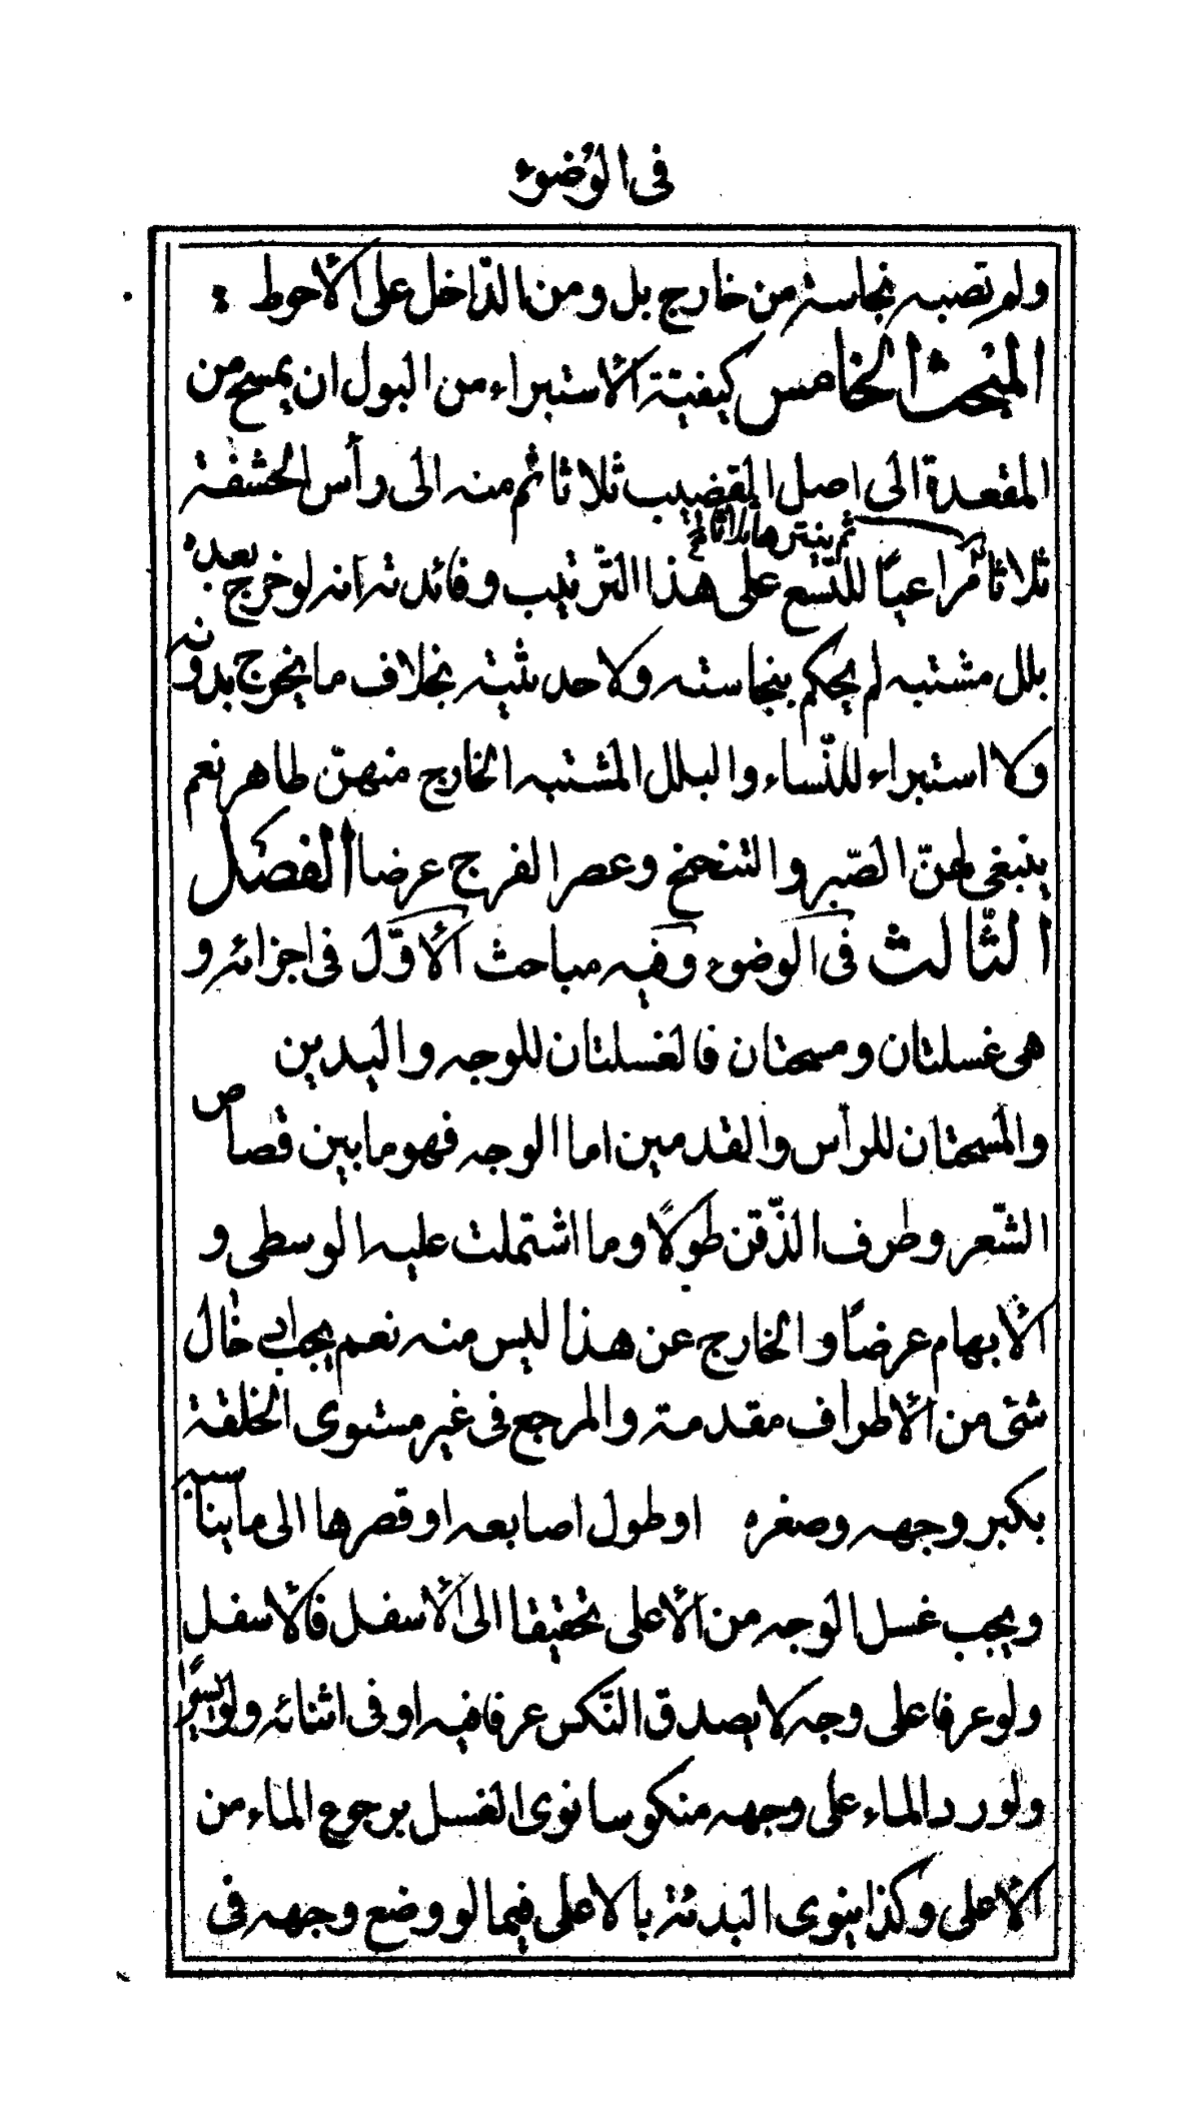 فى الوُضوء
ولم تصبه نجاسة من خارج بل ومن الدّاخل على الأحوط :
المبحث الخامس كيفيّة الأستبراء من البول ان يمسح من
المقعدة الى اصل القضيب ثلاثا ثم منه الى رأس الحشفة
ثم ينترها ثلاثا
ثلاثا مراعيًا للتّسع على هذا الترّتيب وفائدته انه لو خرج بعده
بلل مشتبه لم يحكم بنجاسته ولا حدثيته بخلاف ما يخرج بدونه
ولا استبراء للنّساء والبلل المشتبه الخارج منهنّ طاهر نعم
ينبغى لهنّ الصّبر والتنحنح وعصر الفرج عرضا الفصل
الثّالث فى الوضوء وفيه مباحث الأوّل فى اجزائه و
هى غسلتان ومسحتان فالغسلتان للوجه واليدين
والمسحتان للرأس والقدمين اما الوجه فهو ما بين قصاص
الشّعر وطرف الذّقن طولًا وما اشتملت عليه الوسطى و
الأبهام عرضًا والخارج عن هذا ليس منه نعم يجب ادخال
شئ من الأطراف مقدمة والمرجع فى غير مستوى الخلقة
بكبر وجهه وصغره او طول اصابعه او قصرها الى ما يناسبه
ويجب غسل الوجه من الأعلى تحقيقا الى الأسفل فالأسفل
ولو عرفا على وجه لا يصدق النّكس عرفا فيه او فى اثنائه ولو يسيرًا
ولو ورد الماء على وجهه منكوسا نوى الغسل برجوع الماء من
الأعلى وكذا ينوى البدئة بالاعلى فيما لو وضع وجهه فى